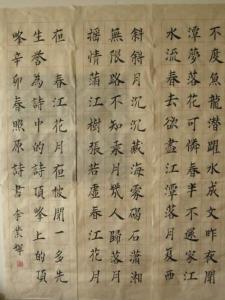 不度魚龍潛躍水成文昨夜閒
潭夢落花可憐春半不還家江
水流春去欲盡江潭落月復西
斜斜月沉沉藏海霧碣石瀟湘
無限路不知乘月幾人歸落月
搖情滿江樹張若虛春江花月
夜 春江花月夜被聞一多先
生譽為詩中的詩頂峰上的頂
峰辛卯春照原詩書 李